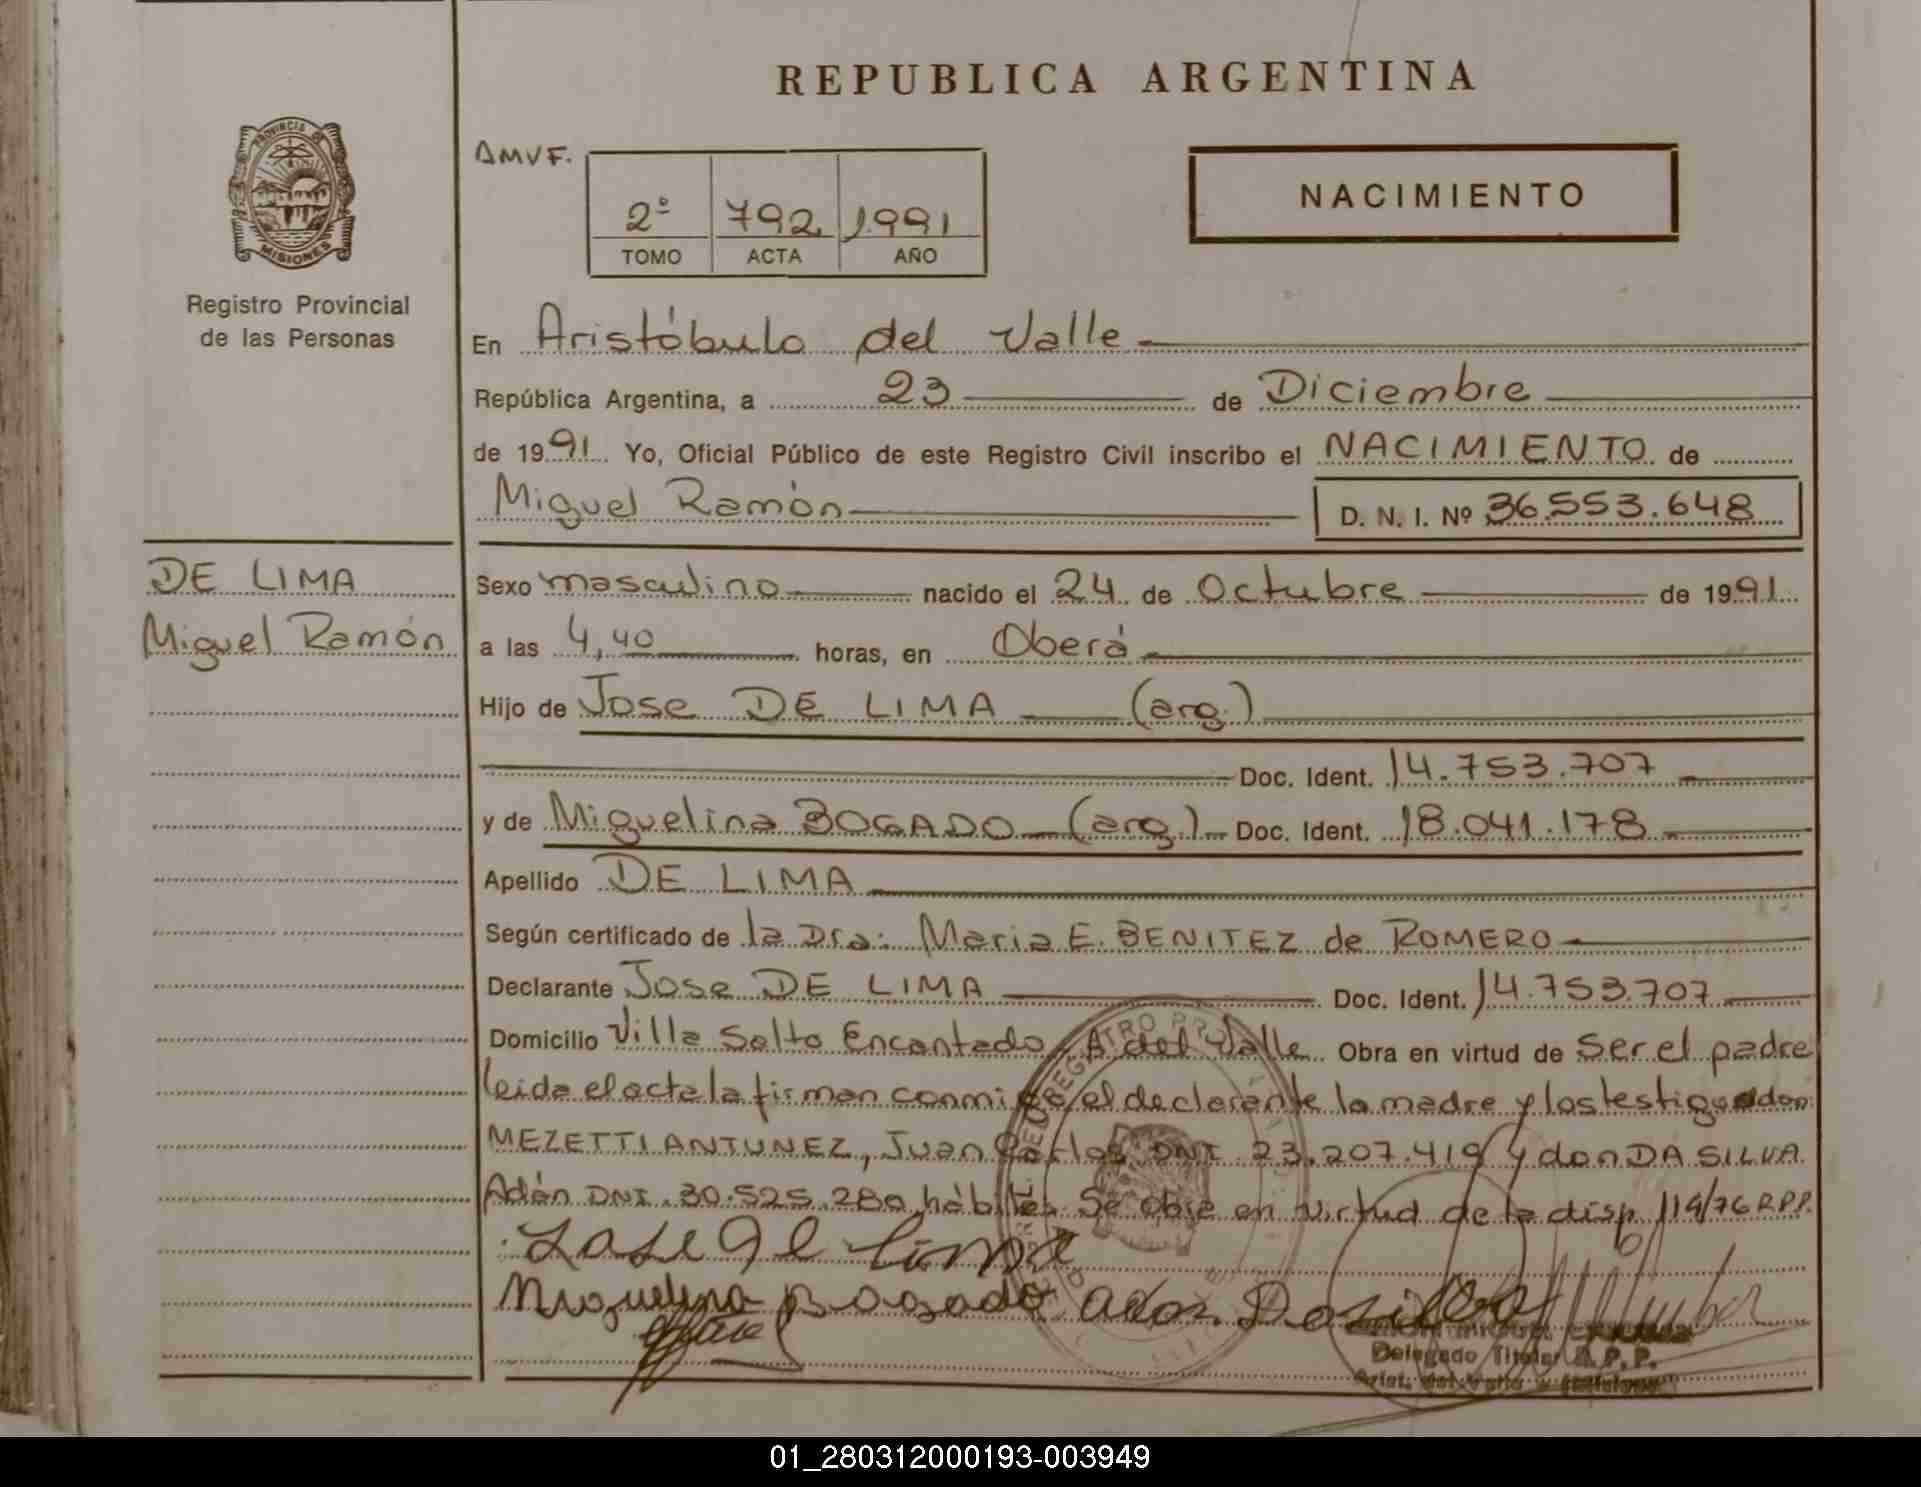 REPUBLICA ARGENTINA
PROVINCIA DE
MISIONES
Registro Provincial
de las Personas
AMVF.
2º 792 1.991
TOMO ACTA AÑO
NACIMIENTO
En Aristóbulo del Valle
República Argentina, a 23 de Diciembre
de 1991 Yo, Oficial Público de este Registro Civil inscribo el NACIMIENTO de
Miguel Ramón
D. N. I. Nº 36.553.648
DE LIMA
Miguel Ramón
Sexo masculino nacido el 24 de Octubre de 1991
a las 4,40 horas, en Oberá
Hijo de Jose DE LIMA (arg.)
Doc. Ident. 14.753.707
y de Miguelina BOGADO (arg.) Doc. Ident. 18.041.178
Apellido DE LIMA
Según certificado de la Dra: Maria E. BENITEZ de ROMERO
Declarante Jose DE LIMA Doc. Ident. 14.753.707
Domicilio Villa Salto Encantado A del Valle Obra en virtud de Ser el padre
leida el acta la firman conmigo el declarante la madre y los testigos don
MEZETTI ANTUNEZ, Juan Carlos DNI 23.207.419 y don DA SILVA
Adán DNI. 30.525.280 hábiles Se obra en virtud de la disp 119/76 R.P.P.
Jose de lima
Miguelina Bogado Adan Da silva
Delegado Titular R. P. P.
01_280312000193-003949